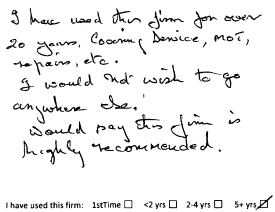 I have used this firm for over
20 years, Covering Service, MOT,
repairs, etc.
I would not wish to go
anywhere else.
Would say this firm is
highly recommended.
I have used this firm: 1stTime ☐ <2 yrs ☐ 2-4 yrs ☐ 5+ yrs ☑